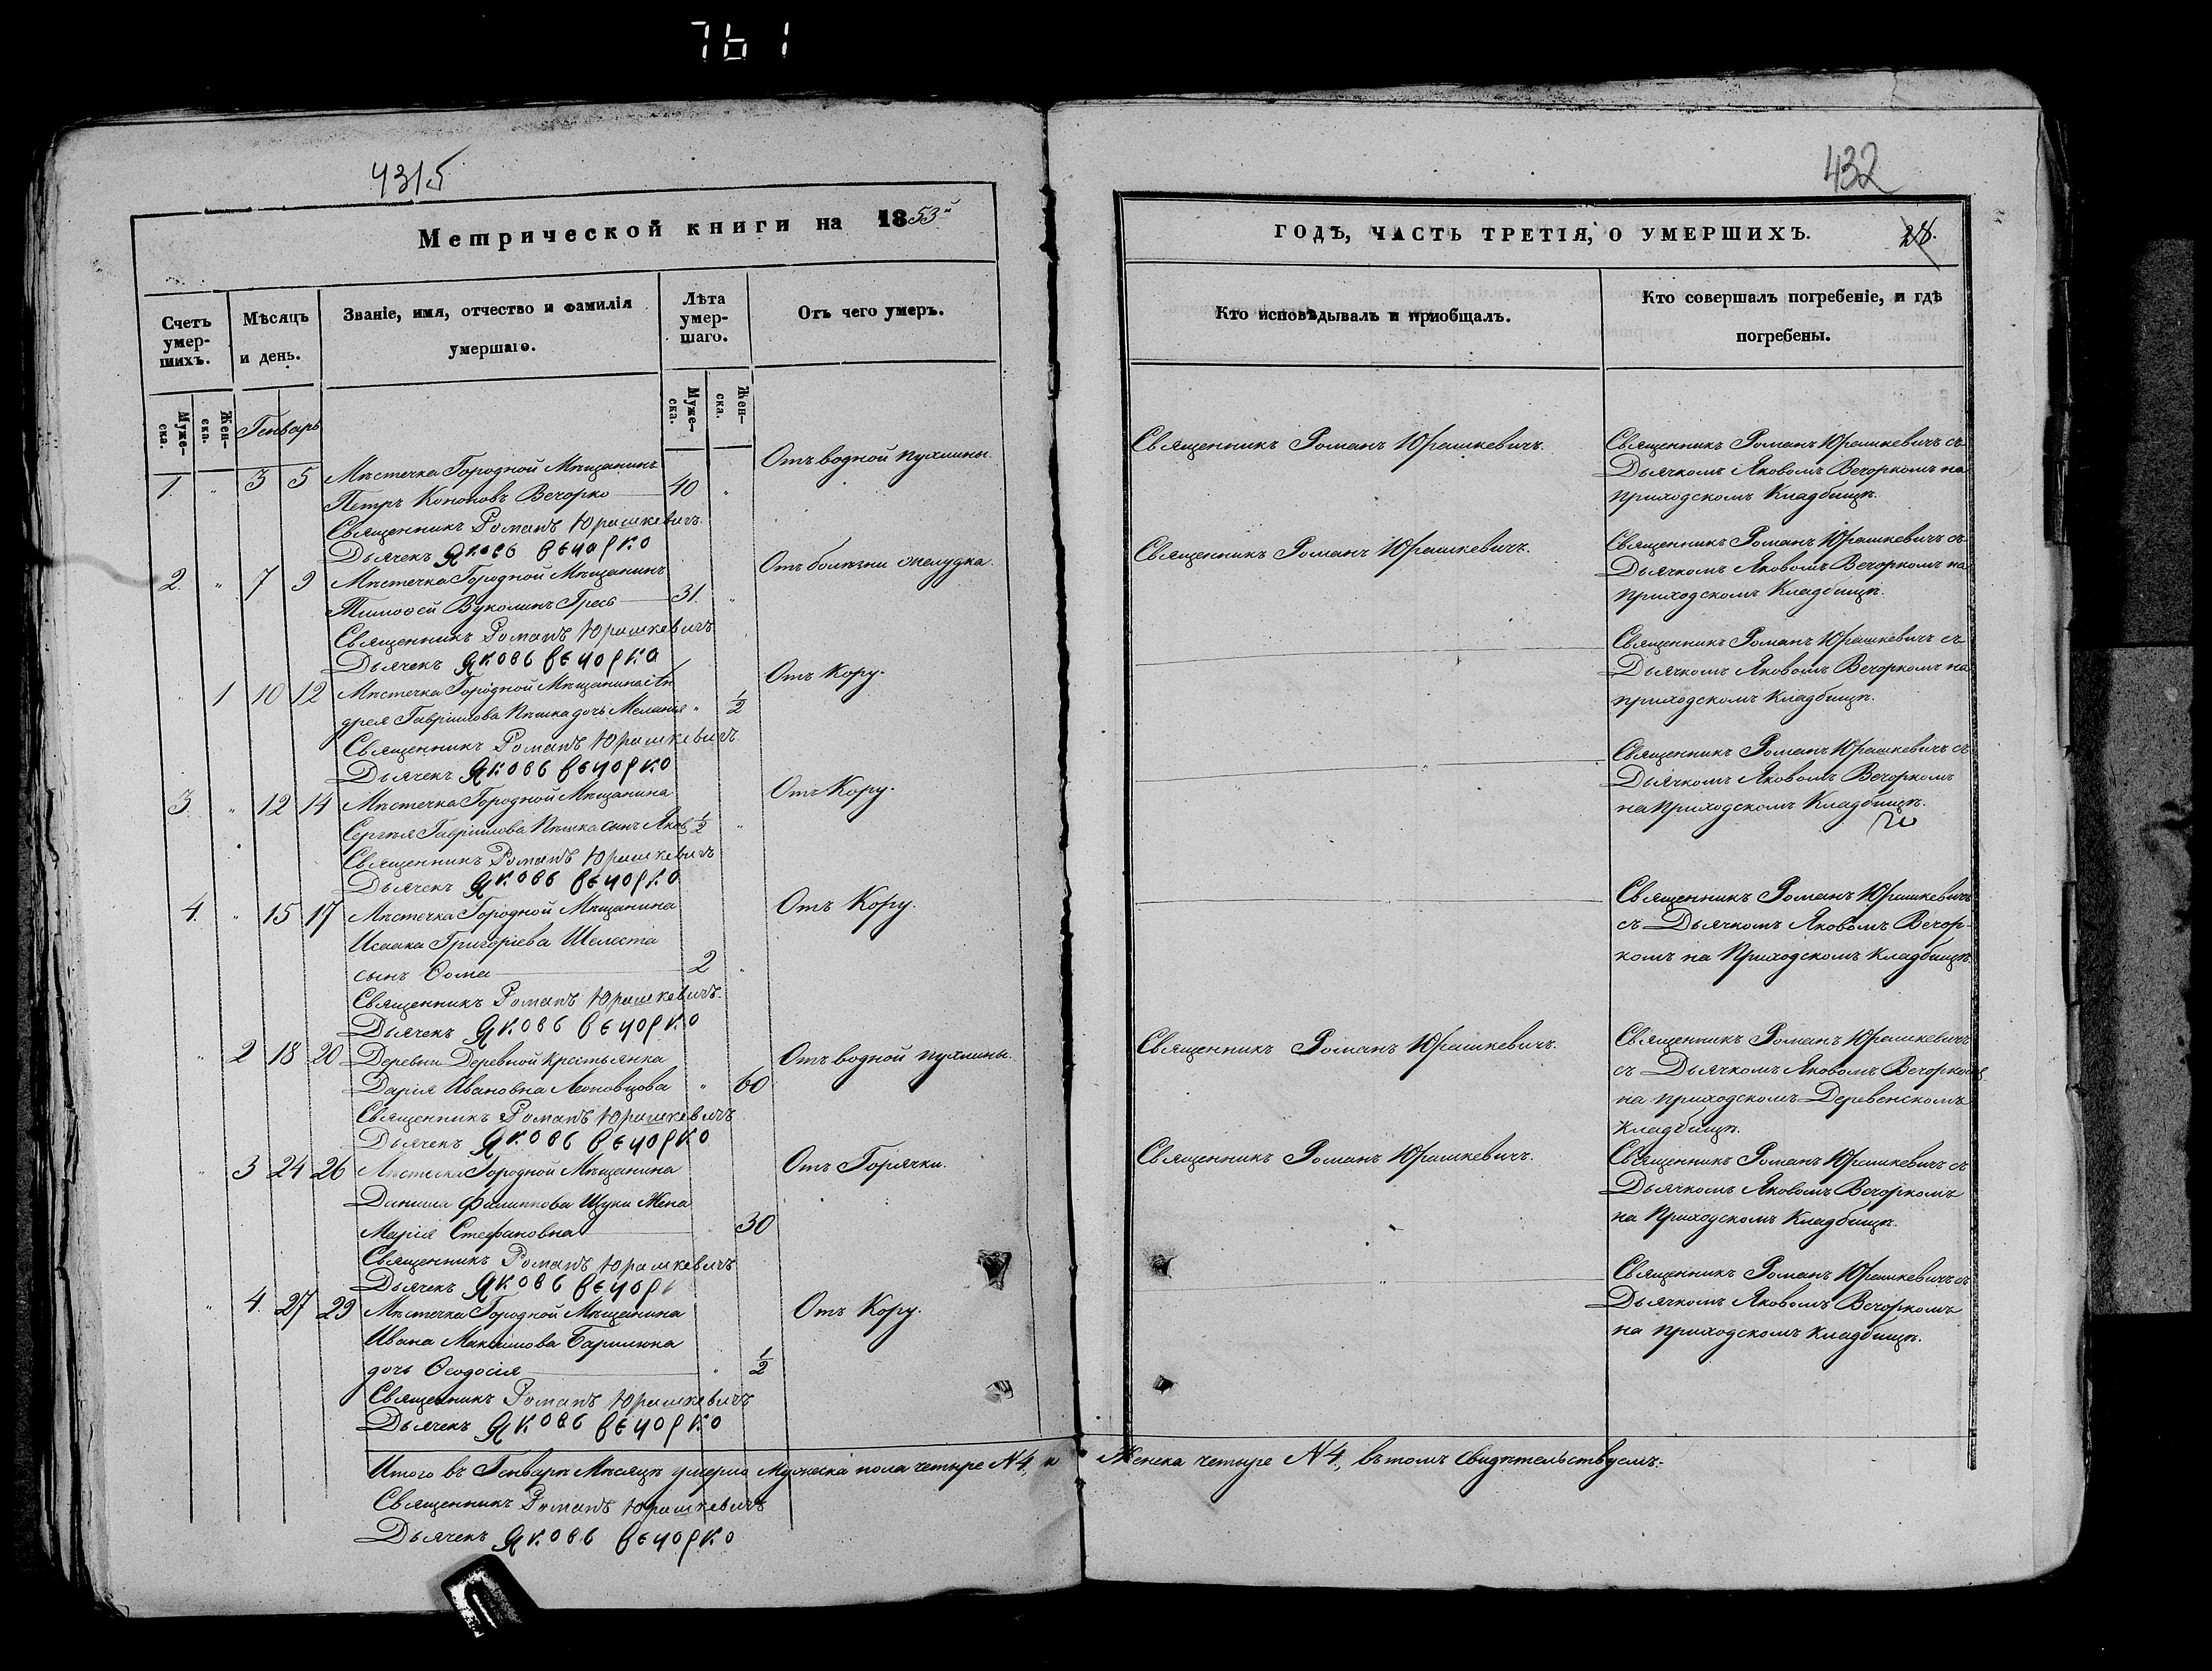 761
431б
Метрической книги на 1853й
Счетъ умер-шихъ.
Мѣсяцъ и день.
Званіе, имя, отчество и фамилія умершаго.
Лѣта умер-шаго.
Отъ чего умеръ.
Муже-ска.
Жен-ска.
Генварь
Муже-ска.
Жен-ска.
1. " 3 5 Мѣстечка Городной Мѣщанинъ Отъ водной пухлины.
Петръ Кононовъ Вечорко 40 "
Священникъ Романъ Юрашкевичъ.
Дьячекъ Яковъ Вечорко
2. " 7 9 Мѣстечка Городной Мѣщанинъ Отъ болѣзни желудка.
Тимофей Вуколинъ Гресь 31. "
Священникъ Романъ Юрашкевичъ
Дьячекъ Яковъ Вечорко
" 1 10 12 Мѣстечка Городной Мѣщанина Ан Отъ Кору.
дрея Гавріилова Пѣшка дочь Меланія " 1/2
Священникъ Романъ Юрашкевичъ
Дьячекъ Яковъ Вечорко
3. " 12 14 Мѣстечка Городной Мѣщанина Отъ Кору.
Сергѣя Гавріилова Пѣшка сынъ Яковъ 1/2 "
Священникъ Романъ Юрашкевичъ
Дьячекъ Яковъ Вечорко
4. " 15 17 Мѣстечка Городной Мѣщанина Отъ Кору.
Исаака Григоріева Шелеста
сынъ Ѳома 2 "
Священникъ Романъ Юрашкевичъ.
Дьячекъ Яковъ Вечорко
" 2 18 20 Деревни Деревной Крестьянка Отъ водной пухлины.
Дарія Ивановна " 60
Священникъ Романъ Юрашкевичъ
Дьячекъ Яковъ Вечорко
" 3 24 26 Мѣстечка Городной Мѣщанина Отъ Горячки.
Данила Филиппова Щуки Жена
Марія Стефановна " 30
Священникъ Романъ Юрашкевичъ
Дьячекъ Яковъ Вечор
" 4. 27 29 Мѣстечка Городной Мѣщанина Отъ Кору.
Ивана Максимова Барилюка
дочь Ѳеодосія " 1/2
Священникъ Романъ Юрашкевичъ
Дьячекъ Яковъ Вечорко
Итого въ Генварѣ Мѣсяцѣ умерло Мужеска пола четыре N 4, и Женска четыре N 4, въ томъ свидѣтельствуемъ:
Священникъ Романъ Юрашкевичъ
Дьячекъ Яковъ Вечорко
432
ГОДЪ, ЧАСТЬ ТРЕТІЯ, О УМЕРШИХЪ. 28.
Кто исповѣдывалъ и приобщалъ.
Кто совершалъ погребеніе, и гдѣ погребены.
Священникъ Романъ Юрашкевичъ. Священникъ Романъ Юрашкевичъ съ
Дьячкомъ Яковомъ Вечоркомъ на
приходскомъ Кладбищѣ.
Священникъ Романъ Юрашкевичъ. Священникъ Романъ Юрашкевичъ съ
Дьячкомъ Яковомъ Вечоркомъ на
приходскомъ Кладбищѣ.
Священникъ Романъ Юрашкевичъ съ
Дьячкомъ Яковомъ Вечоркомъ на
приходскомъ Кладбищѣ.
Священникъ Романъ Юрашкевичъ съ
Дьячкомъ Яковомъ Вечоркомъ
на Приходскомъ Кладбищѣ.
Священникъ Романъ Юрашкевичъ
съ Дьячкомъ Яковомъ Вечор-
комъ на Приходскомъ Кладбищѣ.
Священникъ Романъ Юрашкевичъ. Священникъ Романъ Юрашкевичъ
съ Дьячкомъ Яковомъ Вечоркомъ
на приходскомъ Деревенскомъ
Кладбищѣ.
Священникъ Романъ Юрашкевичъ. Священникъ Романъ Юрашкевичъ съ
Дьячкомъ Яковомъ Вечоркомъ
на Приходскомъ Кладбищѣ.
Священникъ Романъ Юрашкевичъ съ
Дьячкомъ Яковомъ Вечоркомъ
на приходскомъ Кладбищѣ.